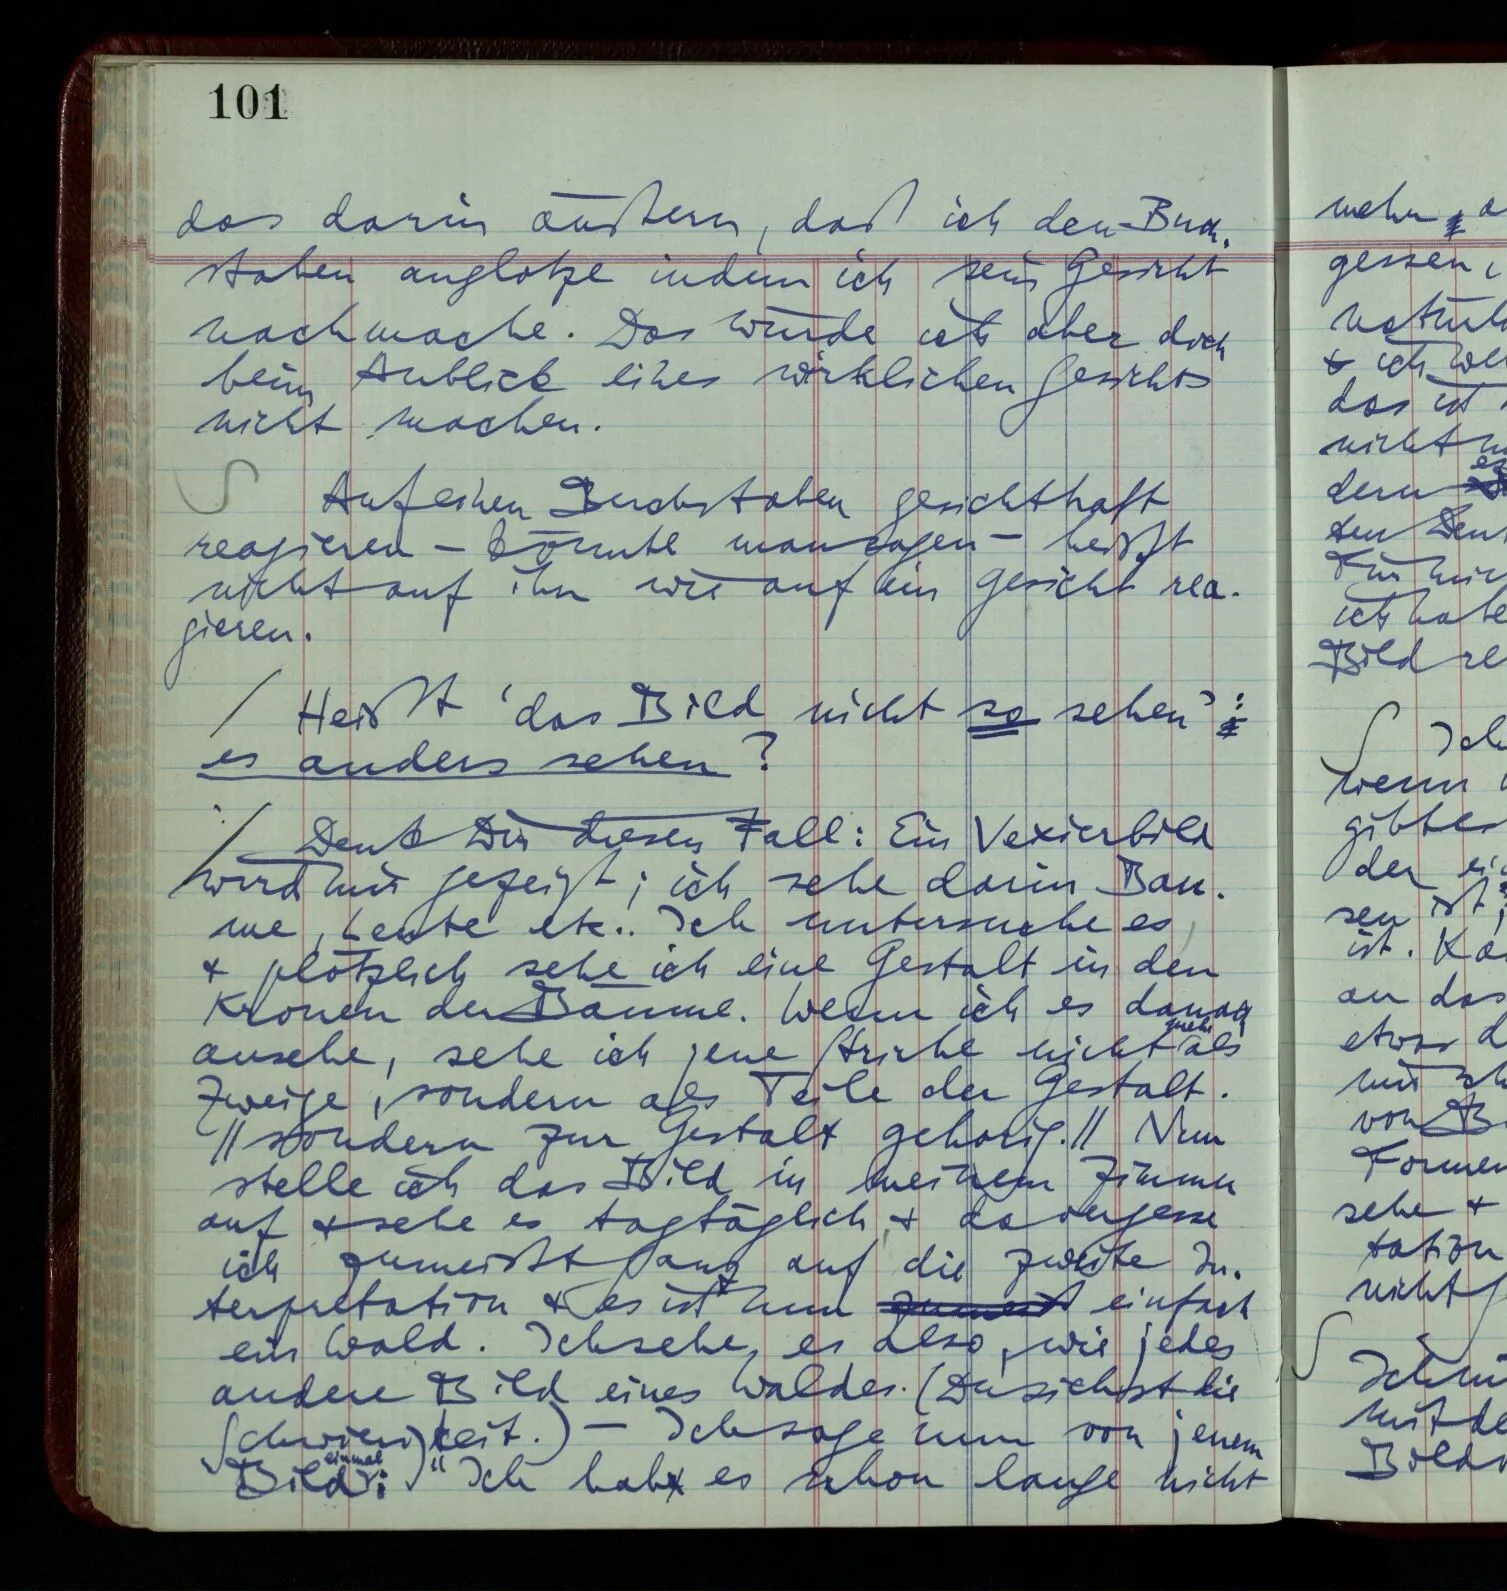 101
das darin äußern, daß ich den Buch-
staben anglotze indem ich sein Gesicht
nachmache. Das würde ich aber doch
beim Anblick eines wirklichen Gesichts
nicht machen.
∫ Auf einen Buchstaben gesichthaft
reagieren – könnte man sagen – heißt
nicht auf ihn wie auf ein Gesicht rea-
gieren.
/ Heißt 'das Bild nicht so sehen':
es anders sehen?
/ Denk Dir diesen Fall: Ein Vexierbild
wird mir gezeigt; ich sehe darin Bäu-
me, Leute etc.. Ich untersuche es,
& plötzlich sehe ich eine Gestalt in den
Kronen der Bäume. Wenn ich es danach
ansehe, sehe ich jene Striche nicht mehr als
Zweige, sondern als Teile der Gestalt.
// sondern zur Gestalt gehörig.// Nun
stelle ich das Bild in meinem Zimmer
auf & sehe es tagtäglich, & da vergesse
ich zumeist ganz auf die zweite In-
terpretation & es ist nun zumeist einfach
ein Wald. Ich sehe es also, wie jedes
andere Bild eines Waldes. (Du siehst die
Schwierigkeit.) – Ich sage nun einmal von jenem
Bild: "Ich habe es schon lange nicht
mehr
gessen
& ich
das ist
nicht
dern
ich habe
Bild
∫ Ich
wenn
der
sen ist;
ist.
an das
etwas
von
Formen
sehe &
tation
nicht
∫